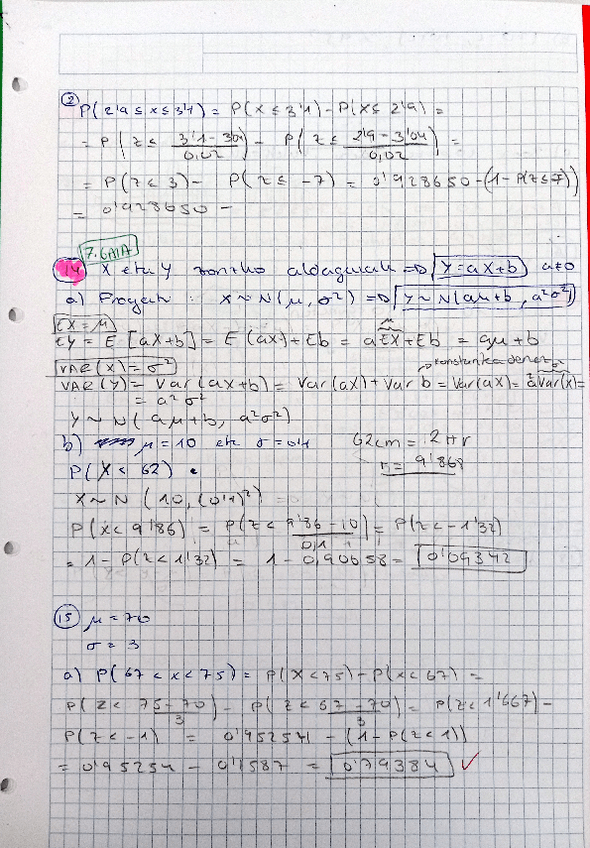 ② P(2'9 ≤ x ≤ 3'1) = P(x ≤ 3'1) - P(x ≤ 2'9) =
= P(z ≤ (3'1 - 3'04)/0,02) - P(z ≤ (2'9 - 3'04)/0,02) =
= P(z < 3) - P(z ≤ -7) = 0'928650 - (1 - P(z ≤ 7))
= 0'928650 -
7. GAIA
14 X eta Y aldagaiak => Y = aX + b a≠0
a) Frogatu : X ~ N(μ, σ²) => Y ~ N(aμ + b, a²σ²)
EX = μ
EY = E[aX + b] = E(aX) + Eb = aEX + Eb = aμ + b
μ
VAR(X) = σ²
konstantea denez σ²
VAR(Y) = Var(aX + b) = Var(aX) + Var b = Var(aX) = a²Var(X) =
= a²σ²
Y ~ N(aμ + b, a²σ²)
b) μ = 10 eta σ = 0'1 62cm = 2πr
P(X < 62) r = 9'868
X ~ N(10, (0'1)²) =
P(x < 9'86) = P(z < (9'86 - 10)/0,1) = P(z < -1'32)
= 1 - P(z < 1'32) = 1 - 0,90658 = 0'09342
15 μ = 70
σ = 3
a) P(67 < x < 75) = P(X < 75) - P(x < 67) =
P(z < (75 - 70)/3) - P(z < (67 - 70)/3) = P(z < 1'667) -
P(z < -1) = 0'95254 - (1 - P(z < 1))
= 0'95254 - 0'1587 = 0'79384 ✓